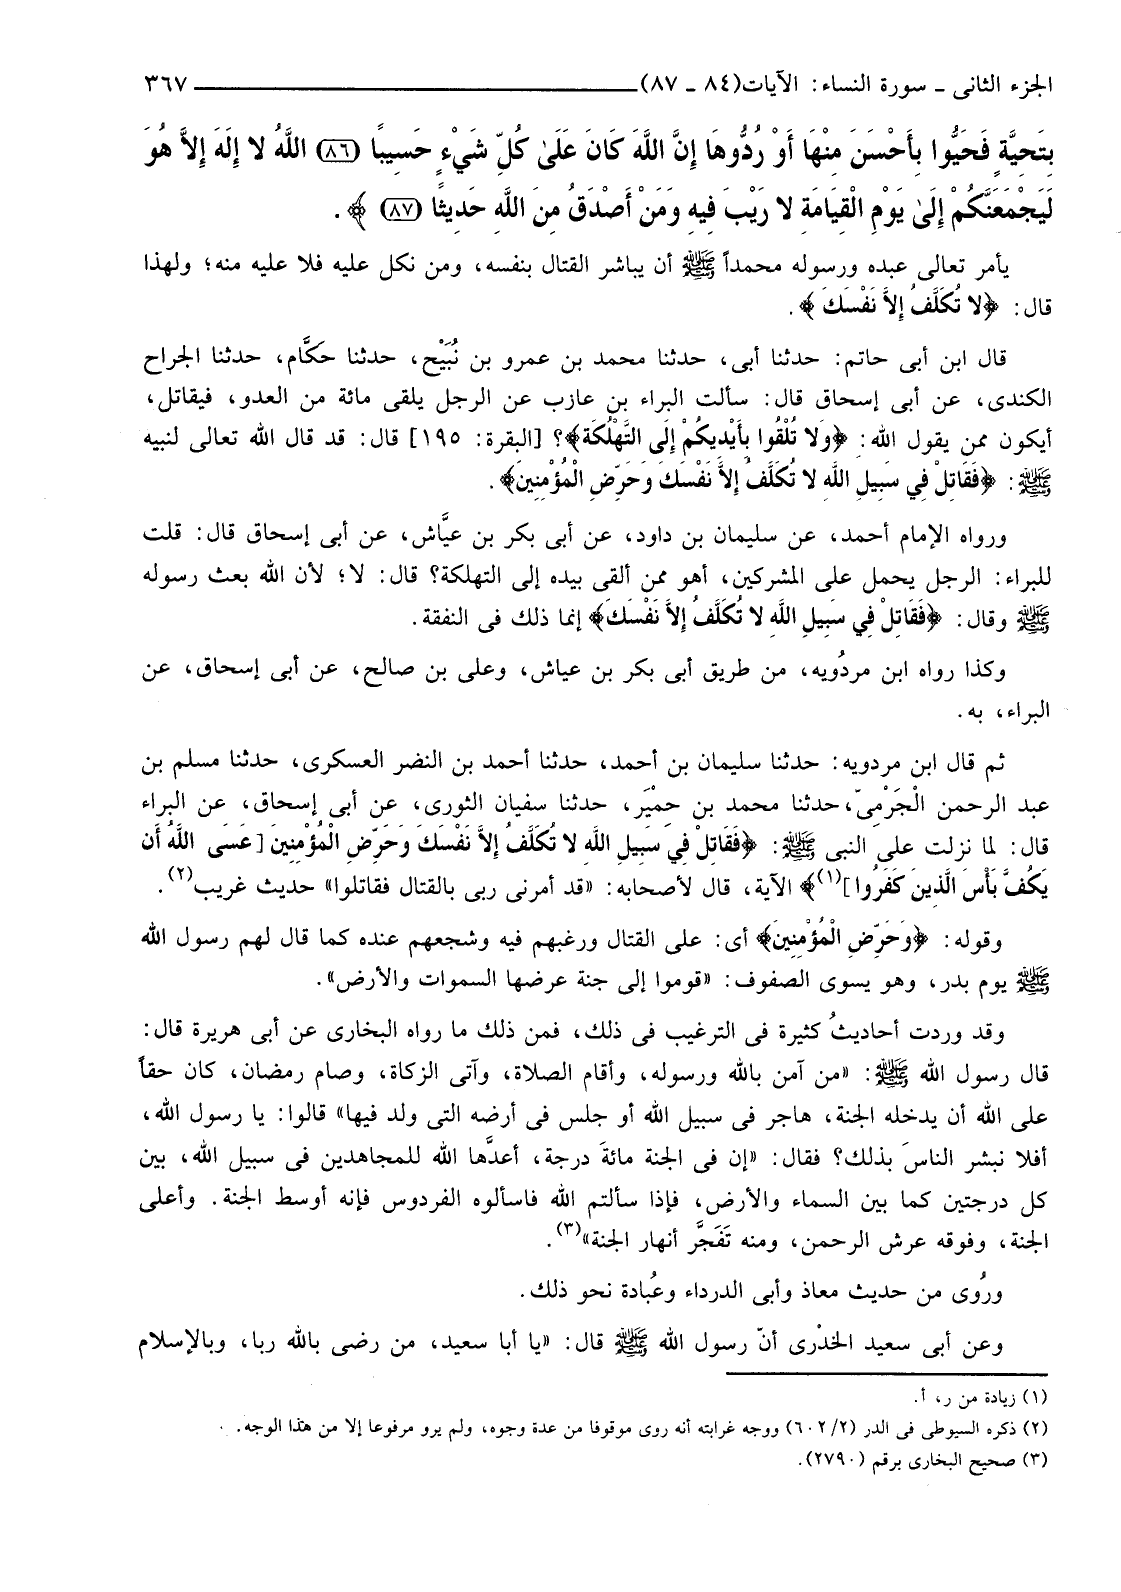 الجزء الثانى ـ سورة النساء: الآيات(٨٤ ـ ٨٧) ٣٦٧
بِتَحِيَّةٍ فَحَيُّوا بِأَحْسَنَ مِنْهَا أَوْ رُدُّوهَا إِنَّ اللَّهَ كَانَ عَلَىٰ كُلِّ شَيْءٍ حَسِيبًا (٨٦) اللَّهُ لا إِلَهَ إِلاَّ هُوَ
لَيَجْمَعَنَّكُمْ إِلَىٰ يَوْمِ الْقِيَامَةِ لا رَيْبَ فِيهِ وَمَنْ أَصْدَقُ مِنَ اللَّهِ حَدِيثًا (٨٧) ﴾ .
يأمر تعالى عبده ورسوله محمداً ﷺ أن يباشر القتال بنفسه، ومن نكل عليه فلا عليه منه؛ ولهذا
قال: ﴿لا تُكَلَّفُ إِلاَّ نَفْسَكَ ﴾ .
قال ابن أبى حاتم: حدثنا أبى، حدثنا محمد بن عمرو بن نُبَيْح، حدثنا حَكَّام، حدثنا الجراح
الكندى، عن أبى إسحاق قال: سألت البراء بن عازب عن الرجل يلقى مائة من العدو، فيقاتل،
أيكون ممن يقول الله: ﴿وَلا تُلْقُوا بِأَيْدِيكُمْ إِلَى التَّهْلُكَةِ﴾؟ [البقرة: ١٩٥] قال: قد قال الله تعالى لنبيه
ﷺ: ﴿فَقَاتِلْ فِي سَبِيلِ اللَّهِ لا تُكَلَّفُ إِلاَّ نَفْسَكَ وَحَرِّضِ الْمُؤْمِنِينَ﴾ .
ورواه الإمام أحمد، عن سليمان بن داود، عن أبى بكر بن عيَّاش، عن أبى إسحاق قال: قلت
للبراء: الرجل يحمل على المشركين، أهو ممن ألقى بيده إلى التهلكة؟ قال: لا؛ لأن الله بعث رسوله
ﷺ وقال: ﴿فَقَاتِلْ فِي سَبِيلِ اللَّهِ لا تُكَلَّفُ إِلاَّ نَفْسَكَ﴾ إنما ذلك فى النفقة.
وكذا رواه ابن مردُويه، من طريق أبى بكر بن عياش، وعلى بن صالح، عن أبى إسحاق، عن
البراء، به.
ثم قال ابن مردويه: حدثنا سليمان بن أحمد، حدثنا أحمد بن النضر العسكرى، حدثنا مسلم بن
عبد الرحمن الْجَرْمِىّ، حدثنا محمد بن حِمْيَر، حدثنا سفيان الثورى، عن أبى إسحاق، عن البراء
قال: لما نزلت على النبى ﷺ: ﴿فَقَاتِلْ فِي سَبِيلِ اللَّهِ لا تُكَلَّفُ إِلاَّ نَفْسَكَ وَحَرِّضِ الْمُؤْمِنِينَ [عَسَى اللَّهُ أَن
يَكُفَّ بَأْسَ الَّذِينَ كَفَرُوا](١)﴾ الآية، قال لأصحابه: «قد أمرنى ربى بالقتال فقاتلوا» حديث غريب(٢).
وقوله: ﴿وَحَرِّضِ الْمُؤْمِنِينَ﴾ أى: على القتال ورغبهم فيه وشجعهم عنده كما قال لهم رسول الله
ﷺ يوم بدر، وهو يسوى الصفوف: «قوموا إلى جنة عرضها السموات والأرض».
وقد وردت أحاديثُ كثيرة فى الترغيب فى ذلك، فمن ذلك ما رواه البخارى عن أبى هريرة قال:
قال رسول الله ﷺ: «من آمن بالله ورسوله، وأقام الصلاة، وآتى الزكاة، وصام رمضان، كان حقاً
على الله أن يدخله الجنة، هاجر فى سبيل الله أو جلس فى أرضه التى ولد فيها» قالوا: يا رسول الله،
أفلا نبشر الناسَ بذلك؟ فقال: «إن فى الجنة مائةَ درجة، أعدَّها الله للمجاهدين فى سبيل الله، بين
كل درجتين كما بين السماء والأرض، فإذا سألتم الله فاسألوه الفردوس فإنه أوسط الجنة. وأعلى
الجنة، وفوقه عرش الرحمن، ومنه تَفَجَّر أنهار الجنة»(٣).
ورُوى من حديث معاذ وأبى الدرداء وعُبادة نحو ذلك.
وعن أبى سعيد الخدْرى أنّ رسول الله ﷺ قال: «يا أبا سعيد، من رضى بالله ربا، وبالإسلام
(١) زيادة من ر، أ.
(٢) ذكره السيوطى فى الدر (٦٠٢/٢) ووجه غرابته أنه روى موقوفا من عدة وجوه، ولم يرو مرفوعا إلا من هذا الوجه.
(٣) صحيح البخارى برقم (٢٧٩٠).